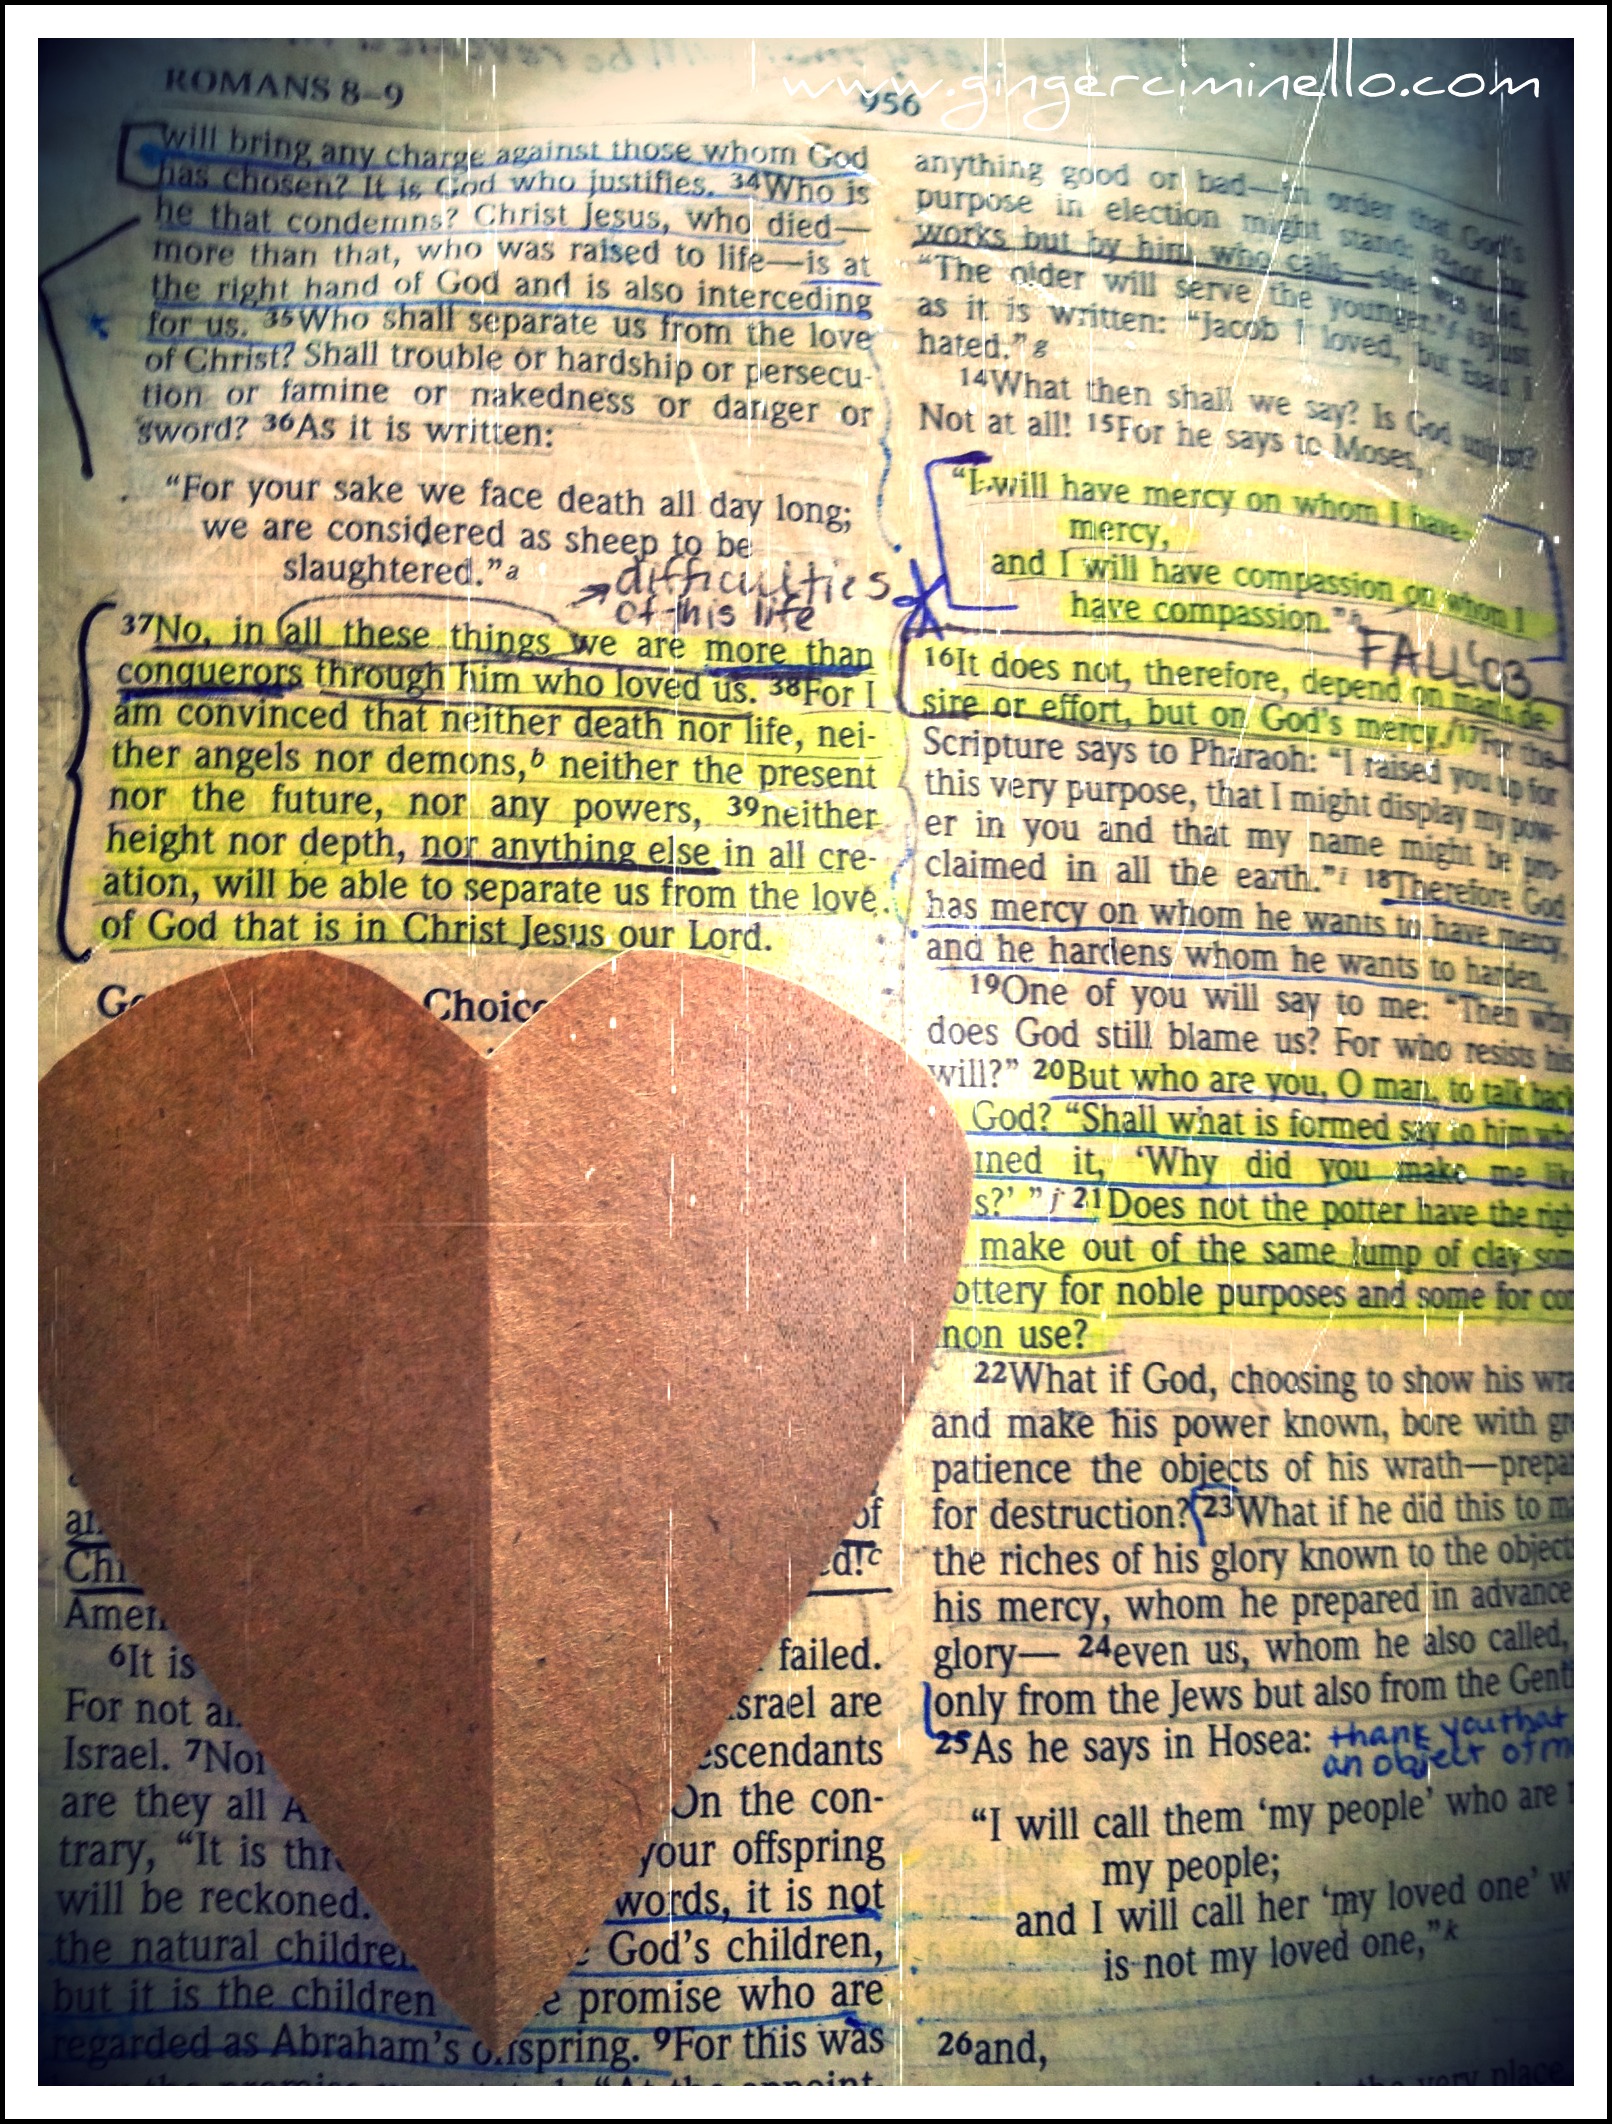 www.gingerciminello.com
ROMANS 8–9
956
will bring any charge against those whom God
has chosen? It is God who justifies. 34Who is
he that condemns? Christ Jesus, who died—
more than that, who was raised to life—is at
the right hand of God and is also interceding
for us. 35Who shall separate us from the love
of Christ? Shall trouble or hardship or persecu-
tion or famine or nakedness or danger or
sword? 36As it is written:
“For your sake we face death all day long;
we are considered as sheep to be
slaughtered.”a
difficulties
of this life
37No, in all these things we are more than
conquerors through him who loved us. 38For I
am convinced that neither death nor life, nei-
ther angels nor demons,b neither the present
nor the future, nor any powers, 39neither
height nor depth, nor anything else in all cre-
ation, will be able to separate us from the love
of God that is in Christ Jesus our Lord.
Choice
of
Chr
ed!c
Amen
6It is failed.
For not al srael are
Israel. 7Nor escendants
are they all A On the con-
trary, “It is thr your offspring
will be reckoned. words, it is not
the natural children God’s children,
but it is the children promise who are
regarded as Abraham’s offspring. 9For this was
anything good or bad—in order that God’s
purpose in election might stand: 12not by
works but by him who calls—she was told,
“The older will serve the younger.”f 13Just
as it is written: “Jacob I loved, but Esau I
hated.”g
14What then shall we say? Is God unjust?
Not at all! 15For he says to Moses,
“I will have mercy on whom I have
mercy,
and I will have compassion on whom I
have compassion.”h
FALL ‘03
16It does not, therefore, depend on man’s de-
sire or effort, but on God’s mercy. 17For the
Scripture says to Pharaoh: “I raised you up for
this very purpose, that I might display my pow-
er in you and that my name might be pro-
claimed in all the earth.”i 18Therefore God
has mercy on whom he wants to have mercy,
and he hardens whom he wants to harden.
19One of you will say to me: “Then why
does God still blame us? For who resists his
will?” 20But who are you, O man, to talk back
God? “Shall what is formed say to him who
med it, ‘Why did you make me like
s?’ ”j 21Does not the potter have the righ
make out of the same lump of clay som
ottery for noble purposes and some for com
mon use?
22What if God, choosing to show his wra
and make his power known, bore with gr
patience the objects of his wrath—prepar
for destruction? 23What if he did this to ma
the riches of his glory known to the object
his mercy, whom he prepared in advance
glory— 24even us, whom he also called,
only from the Jews but also from the Gent
25As he says in Hosea:
thank you that
an object of m
“I will call them ‘my people’ who are n
my people;
and I will call her ‘my loved one’ w
is not my loved one,”k
26and,